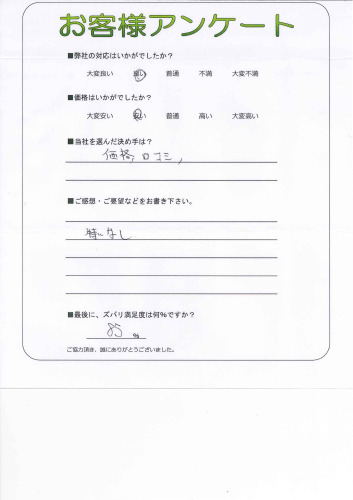 お客様アンケート
■弊社の対応はいかがでしたか?
大変良い 良い 普通 不満 大変不満
■価格はいかがでしたか?
大変安い 安い 普通 高い 大変高い
■当社を選んだ決め手は?
価格、口コミ、
■ご感想・ご要望などをお書き下さい。
特になし
■最後に、ズバリ満足度は何%ですか?
85 %
ご協力頂き、誠にありがとうございました。